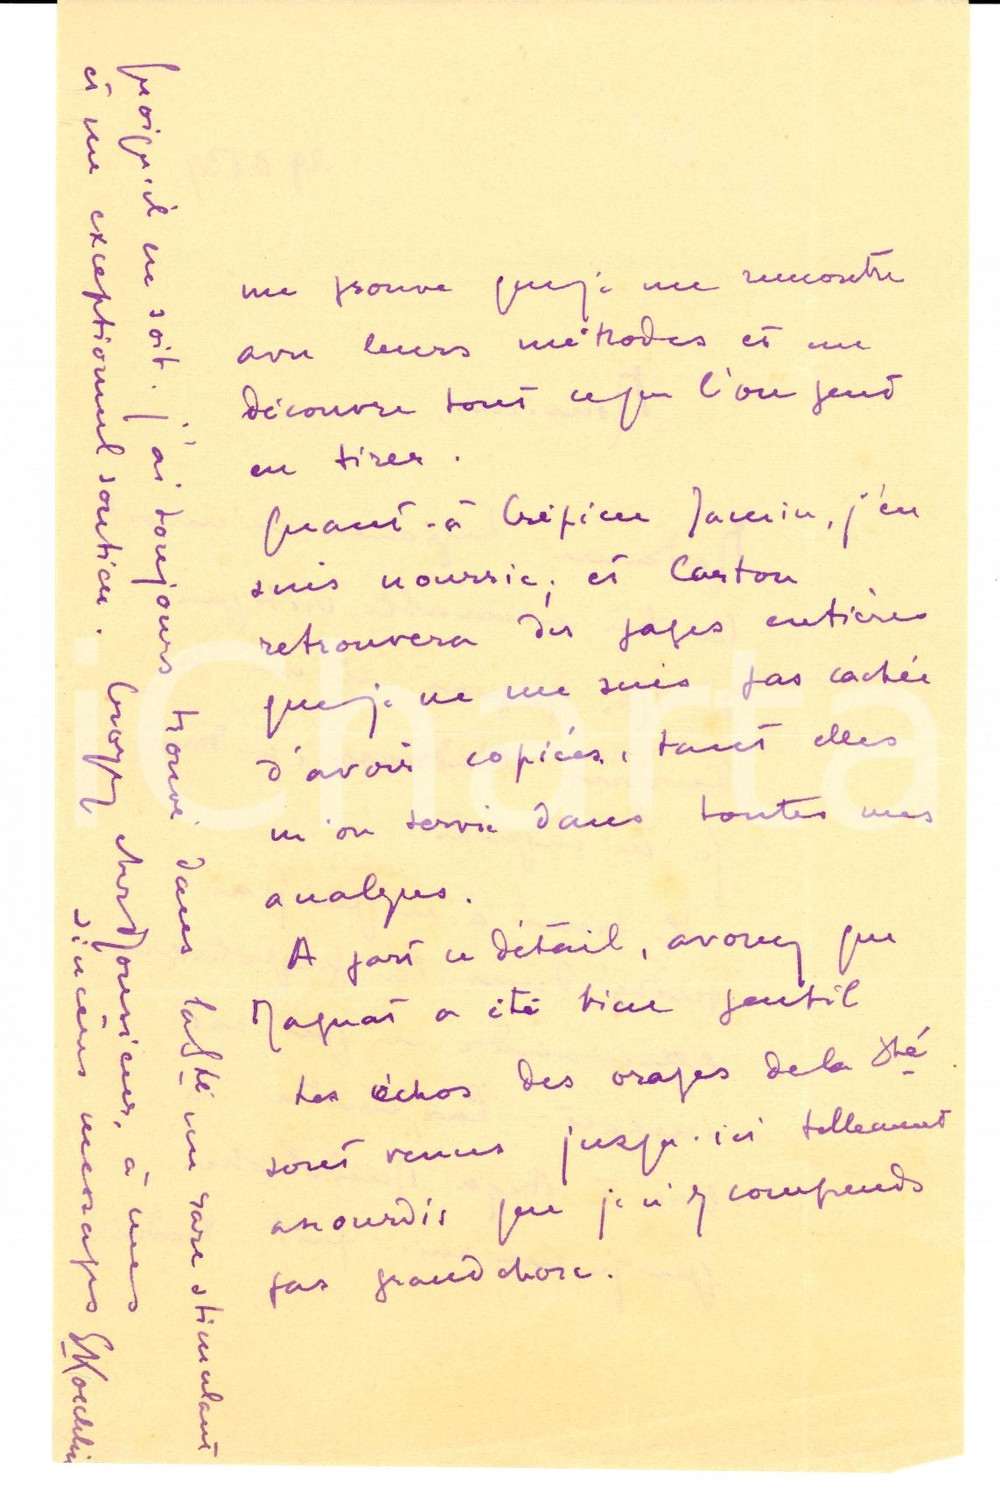 me prouve que je me rencontre
avec leurs méthodes et me
découvre tout ce que l'on peut
en tirer.
Quant-à Crépieux Jamin, j'en
suis nourrie; et Carton
retrouvera des pages entières
que je ne me suis pas cachée
d'avoir copiées, tant elles
m'on servie dans toutes mes
analyses.
A part ce détail, avouez que
Magnat a été bien gentil
Les échos des orages de la Sté
sont venus jusqu'ici tellement
assourdis que je n'y comprends
pas grand chose.
Quoiqu'il ne soit. j'ai toujours trouvé dans la Sté un rare stimulant
et un exceptionnel soutien. Croyez cher Monsieur, à mes
sincères messages EKoechlin
iCharta